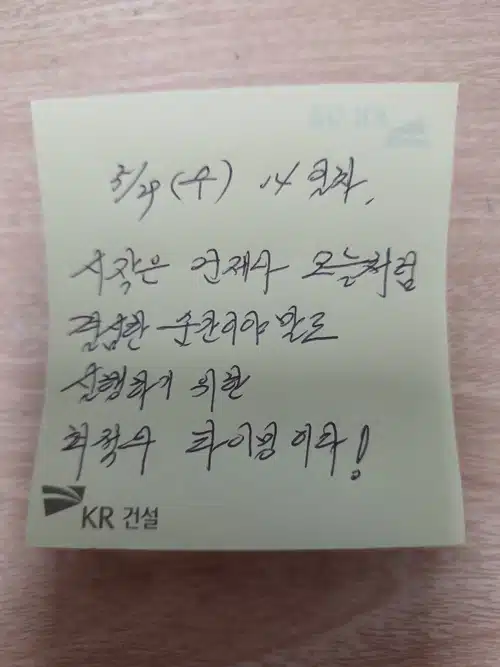 5/29 (수) 14일차,
시작은 언제나 오늘처럼
결심한 순간이야 말로
실행하기 위한
최적의 타이밍이다!
KR 건설